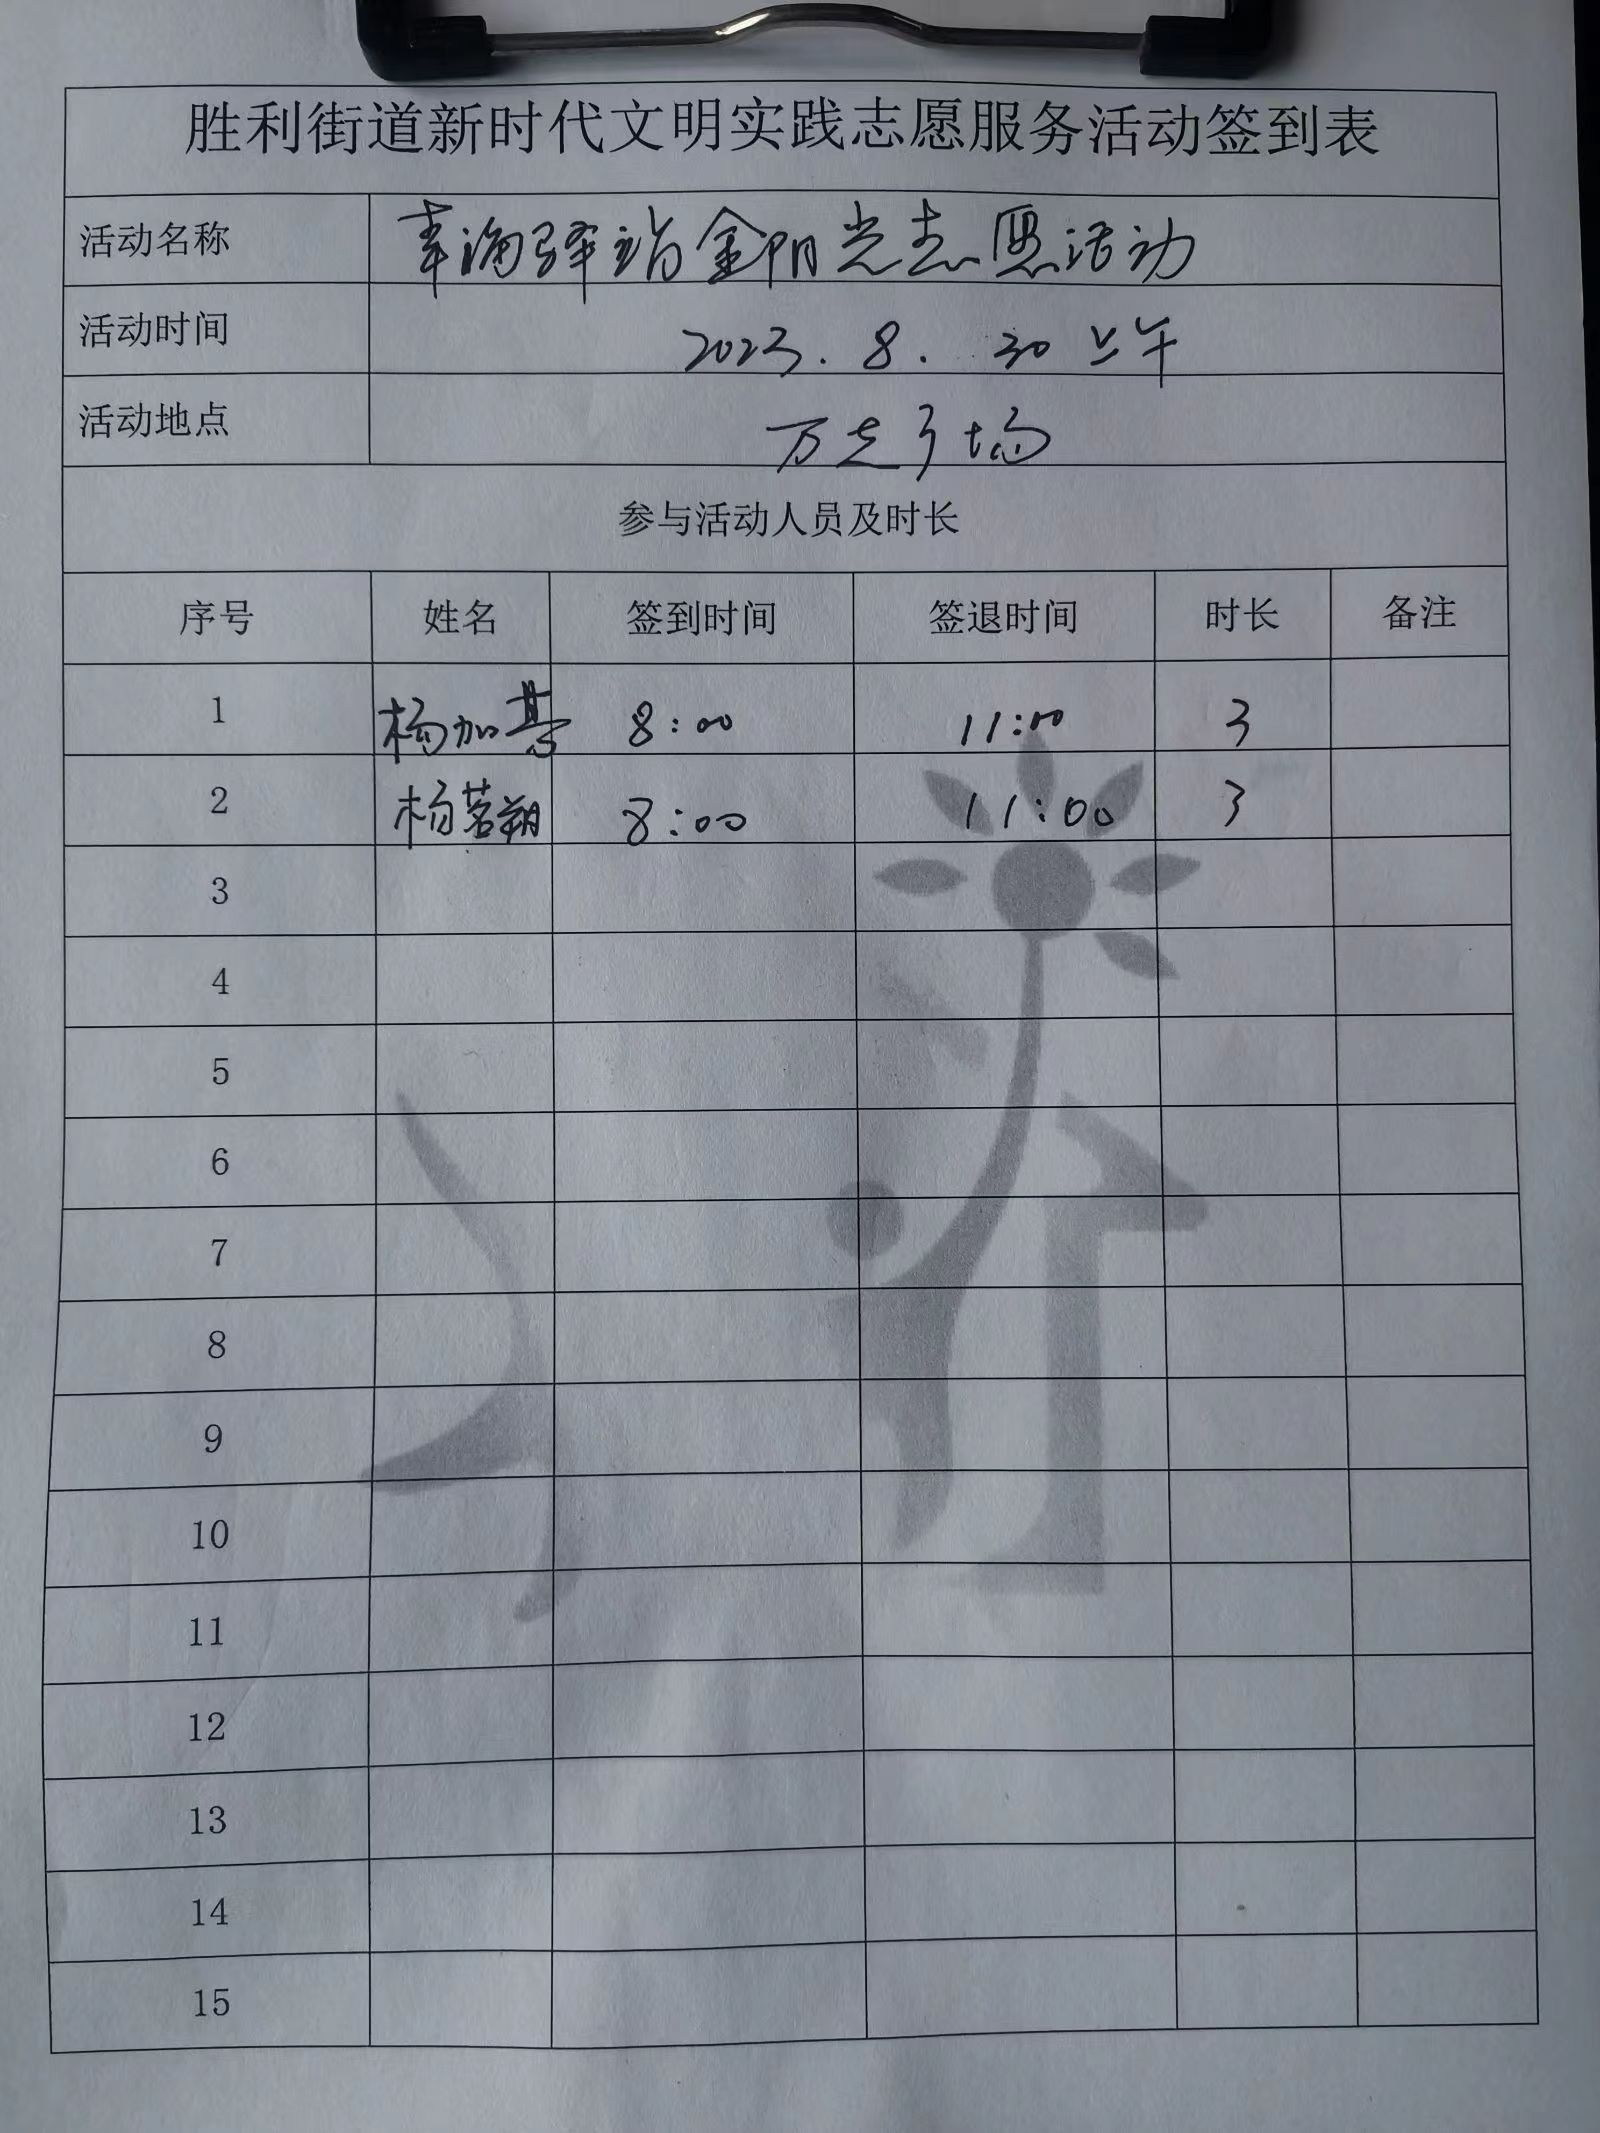 胜利街道新时代文明实践志愿服务活动签到表
活动名称 幸海驿站金阳光志愿活动
活动时间 2023.8.30 上午
活动地点 万达广场
参与活动人员及时长
序号 姓名 签到时间 签退时间 时长 备注
1 杨加 8:00 11:00 3
2 杨茗朔 8:00 11:00 3
3
4
5
6
7
8
9
10
11
12
13
14
15